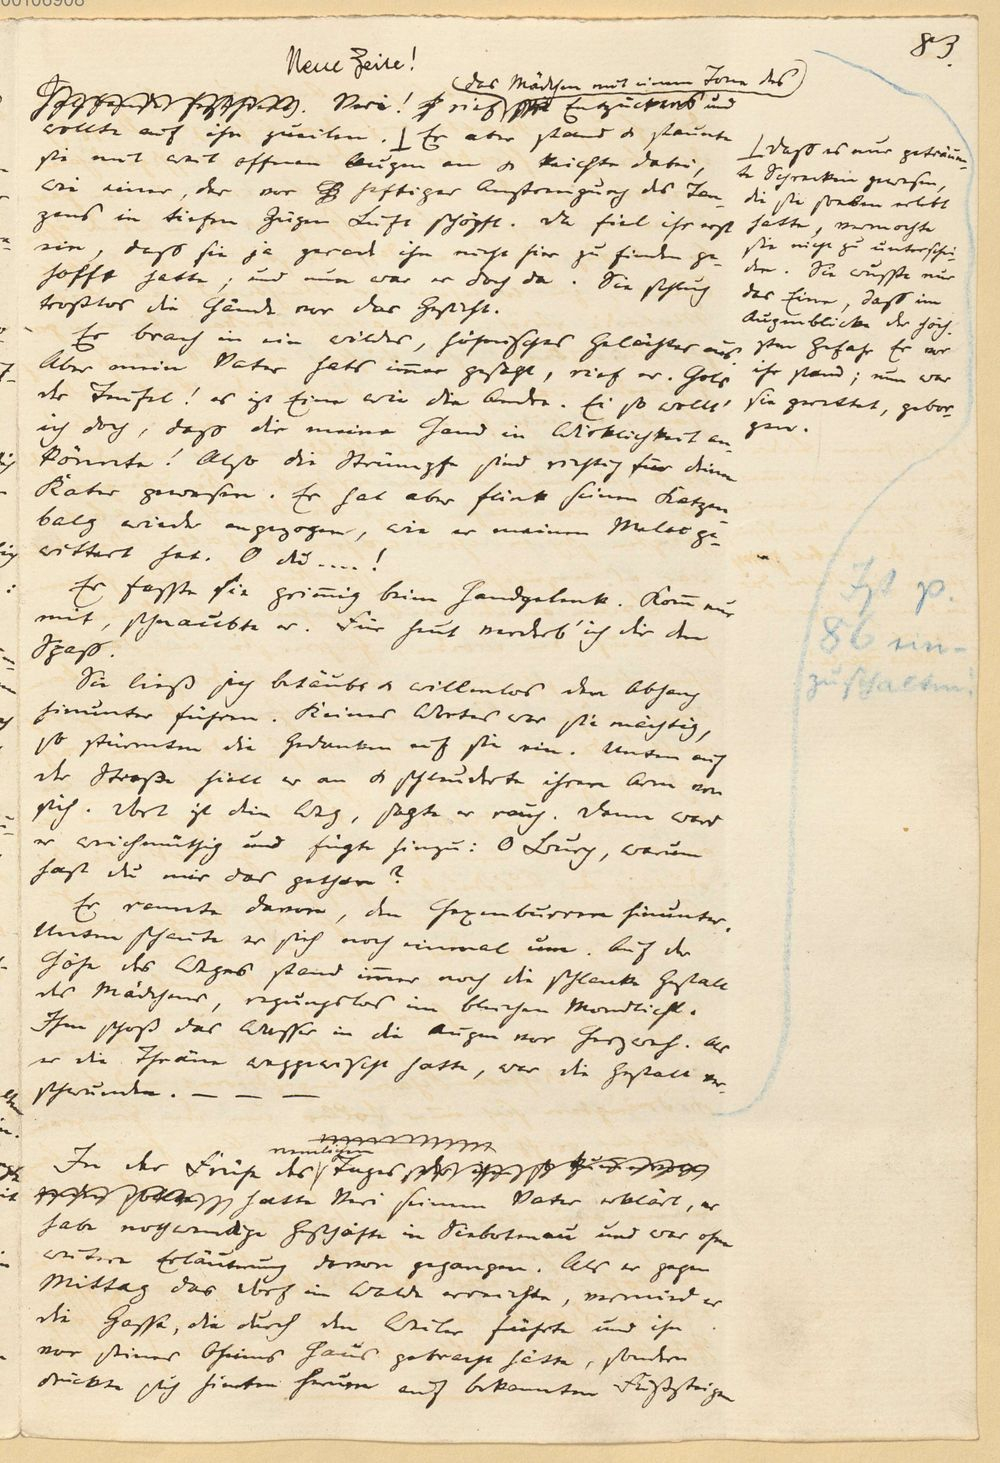 83.
Neue Zeile!
(das Mädchen mit einem Tone des)
Veri! rief Entzückens und
wollte auf ihn zueilen. ⊥ Er aber stand & staunte
sie mit weit offenen Augen an & keichte dabei,
wie einer, der vor heftiger Anstrengung des Tan-
zens in tiefen Zügen Luft schöpft. Da fiel ihr erst
ein, dass sie ja gerade ihn nicht hier zu finden ge-
hofft hatte; und nun war er doch da. Sie schlug
trostlos die Hände vor das Gesicht.
⊥ dass es nur geträum-
te Schrecken gewesen,
die sie soeben erlebt
hatte, vermochte
sie nicht zu unterschei-
den. Sie wusste nur
das Eine, dass im
Augenblicke der höch-
sten Gefahr Er vor
ihr stand; nun war
sie gerettet, gebor-
gen.
Er brach in ein wildes, höhnisches Gelächter aus.
Aber mein Vater hats immer gesagt, rief er. Hols
der Teufel! es ist Eine wie die Andre. Ei so wollt'
ich doch, dass dir meine Hand in Wirklichkeit an-
könnte! Also die Strümpfe sind richtig für deinen
Kater gewesen. Er hat aber flink seinen Katzen
balg wieder angezogen, wie er meinen Melac ge-
wittert hat. O du ....!
Er fasste sie grimmig beim Handgelenk. Kom̅ nur
mit, schnaubte er. Für heut verderb' ich dir den
Spass.
Sie liess sich betäubt & willenlos den Abhang
hinunter führen. Keines Wortes war sie mächtig,
so stürmten die Gedanken auf sie ein. Unten auf
der Strasse hielt er an & schleuderte ihren Arm von
sich. Dort ist dein Weg, sagte er rauh. Dann ward
er weichmüthig und fügte hinzu: O Burg, warum
hast du mir das gethan?
Er rannte davon, den Hexenburren hinunter.
Unten schaute er sich noch einmal um. Auf der
Höhe des Weges stand im̅er noch die schlanke Gestalt
des Mädchens, regungslos im bleichen Mondlicht.
Ihm schoss das Wasser in die Augen vor Herzweh. Als
er die Thräne weggewischt hatte, war die Gestalt ver-
schwunden. — — —
Ist p.
86 ein-
zuschalten!
nemlichen
In der Frühe des Tages
hatte Veri seinem Vater erklärt, er
habe nothwendige Geschäfte in Siebotenau und war ohne
weitere Erläuterung davon gegangen. Als er gegen
Mittag das Dorf im Walde erreichte, vermied er
die Gasse, die durch den Weiler führte und ihn
vor seines Oheims Haus gebracht hätte, sondern
drückte sich hinten herum auf bekannten Fusssteigen